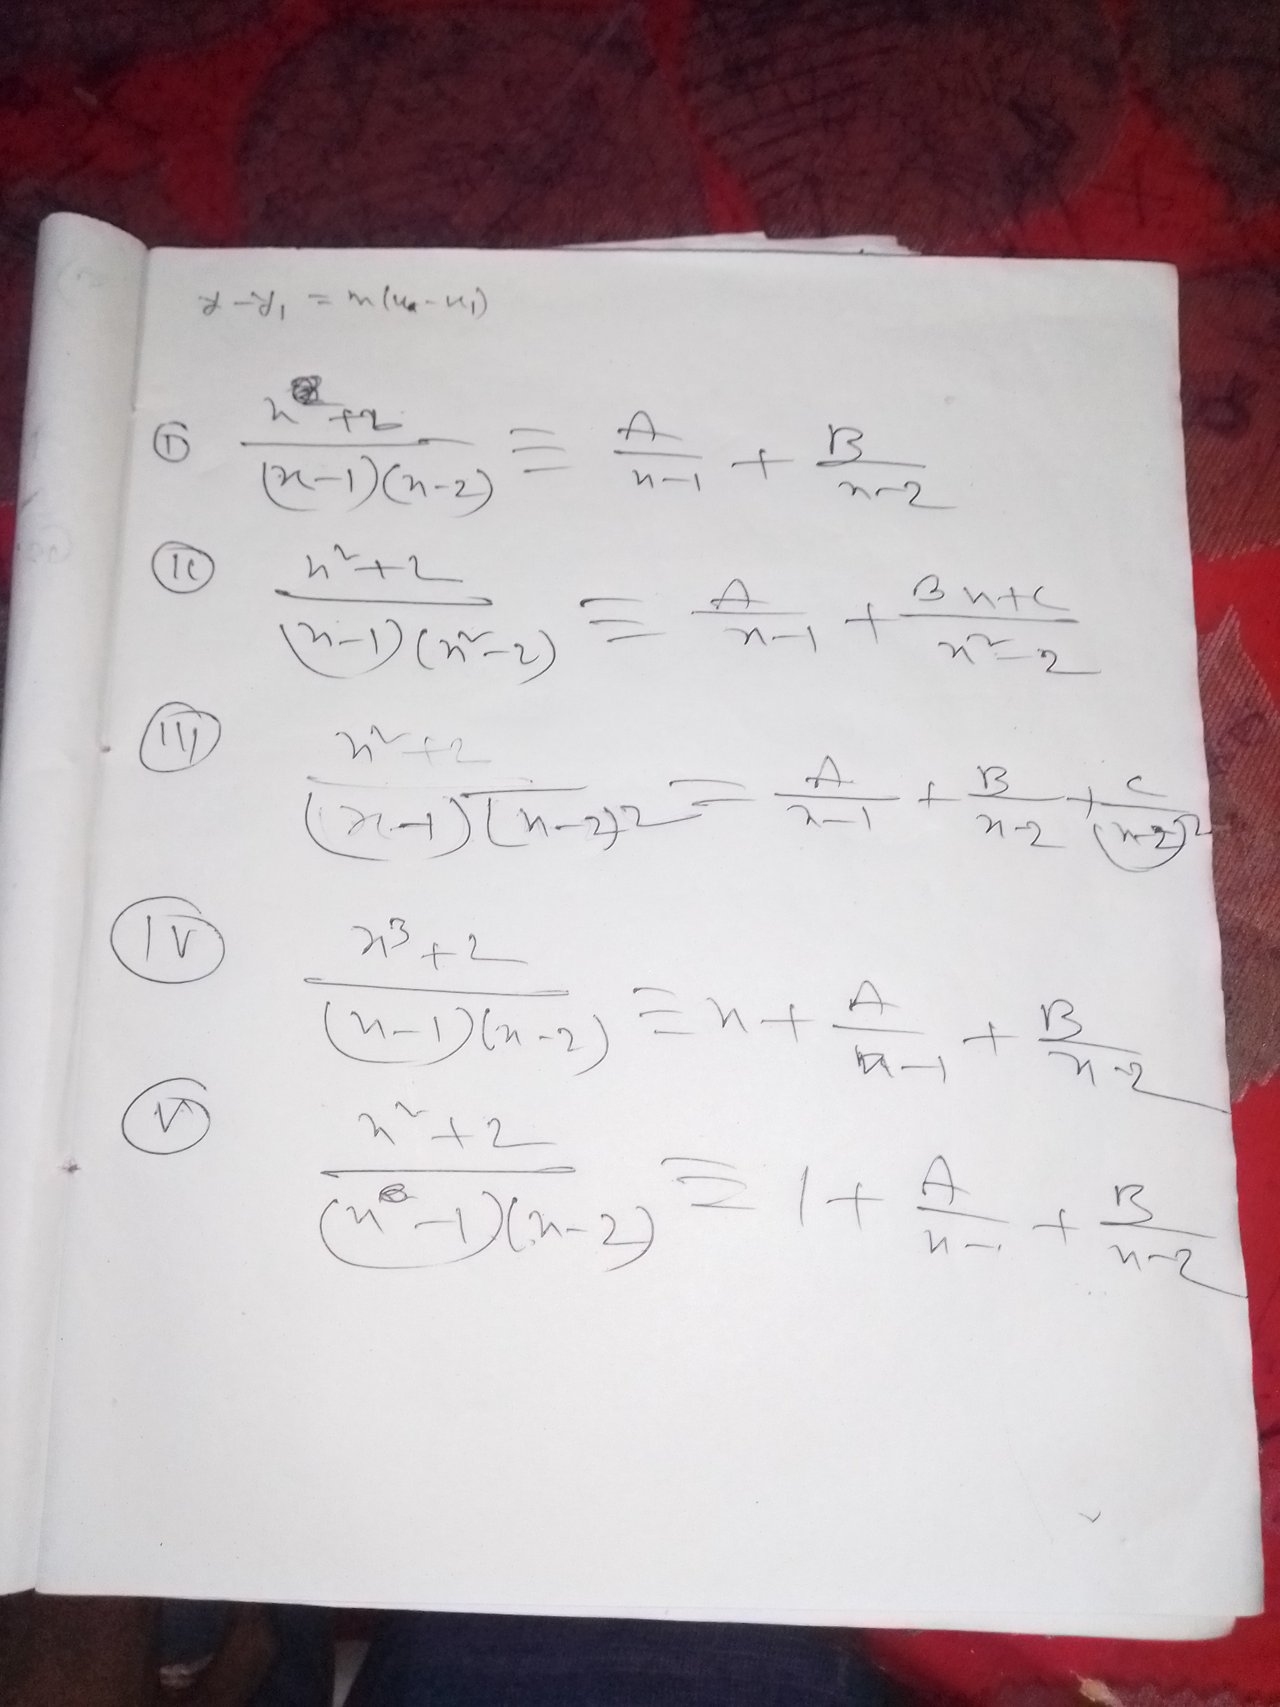 y - y₁ = m(x - x₁)
(I) (x + 2)/((x-1)(x-2)) ≡ A/(x-1) + B/(x-2)
(II) (x² + 2)/((x-1)(x²-2)) ≡ A/(x-1) + (Bx+C)/(x²-2)
(III) (x² + 2)/((x-1)(x-2)²) = A/(x-1) + B/(x-2) + C/(x-2)²
(IV) (x³ + 2)/((x-1)(x-2)) ≡ x + A/(x-1) + B/(x-2)
(V) (x² + 2)/((x-1)(x-2)) ≡ 1 + A/(x-1) + B/(x-2)